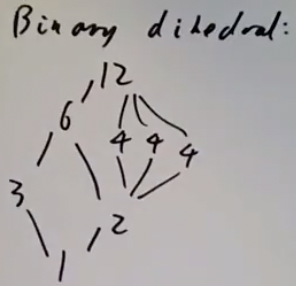 Binary dihedral:
12
6
4 4 4
3
2
1